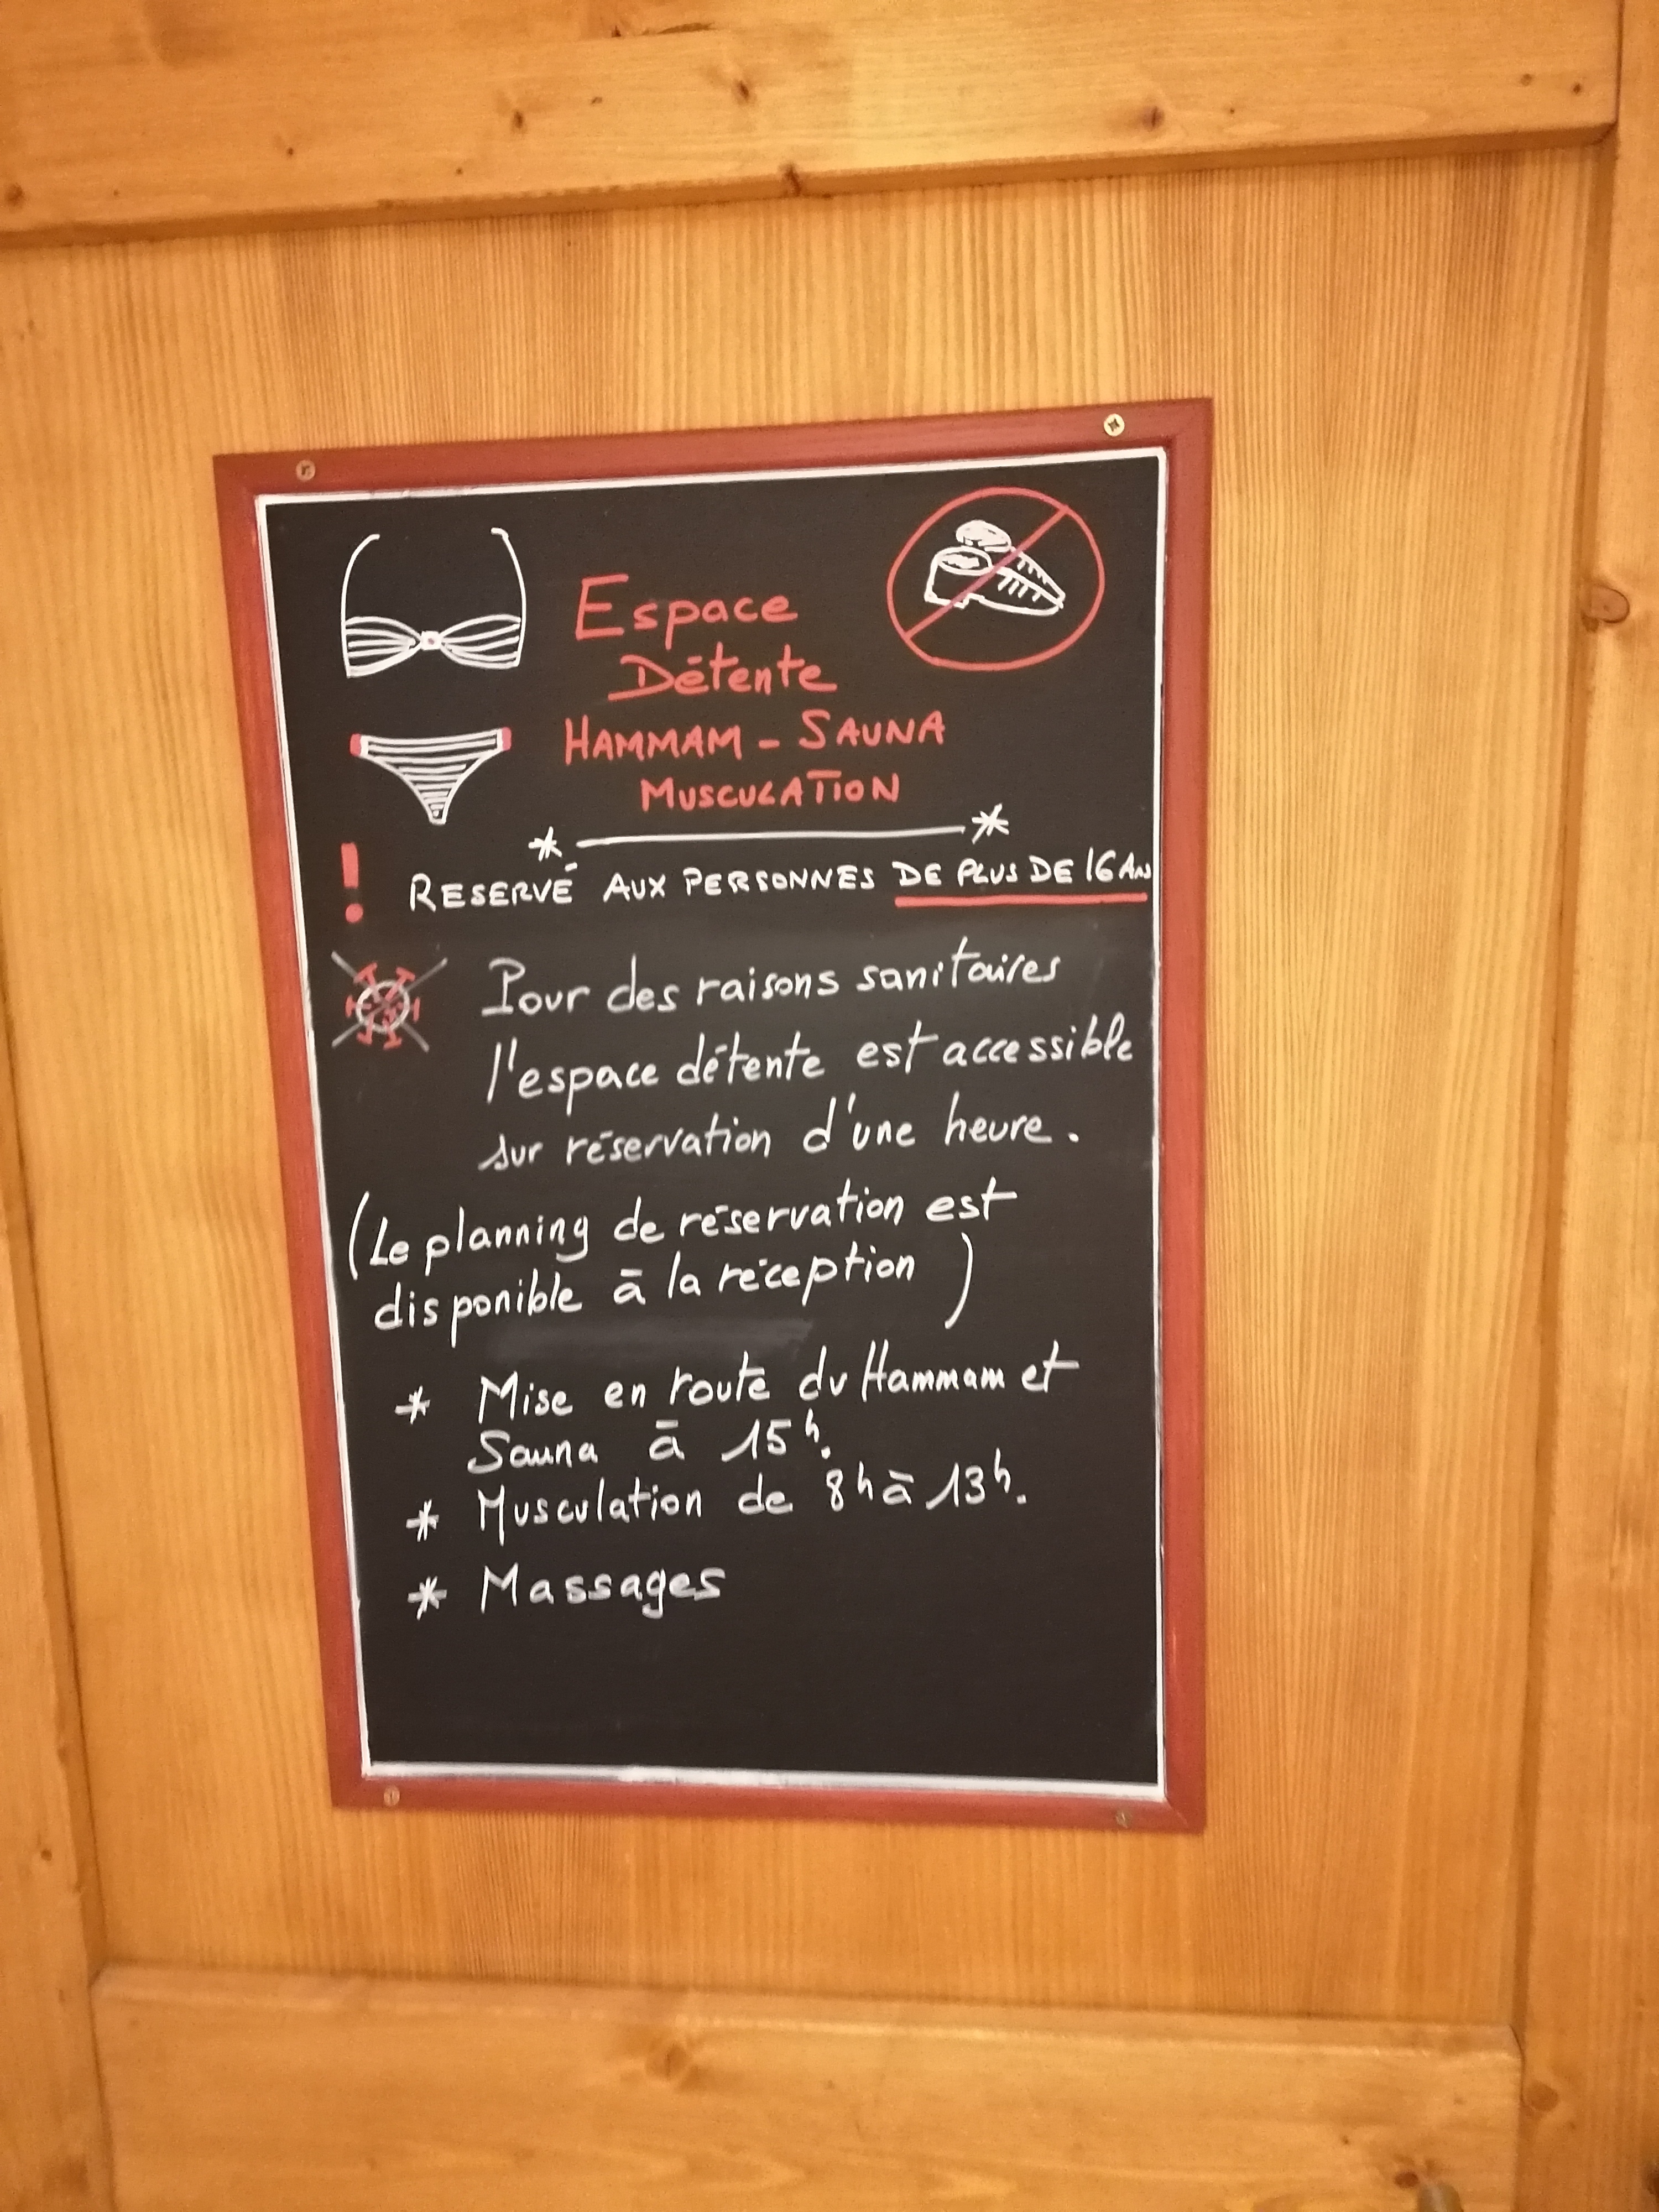 Espace
Détente
HAMMAM - SAUNA
MUSCULATION
* *
! RESERVÉ AUX PERSONNES DE PLUS DE 16 ANS
Pour des raisons sanitaires
l'espace détente est accessible
sur réservation d'une heure.
(Le planning de réservation est
disponible à la réception)
* Mise en route du Hammam et
Sauna à 15h.
* Musculation de 8h à 13h.
* Massages